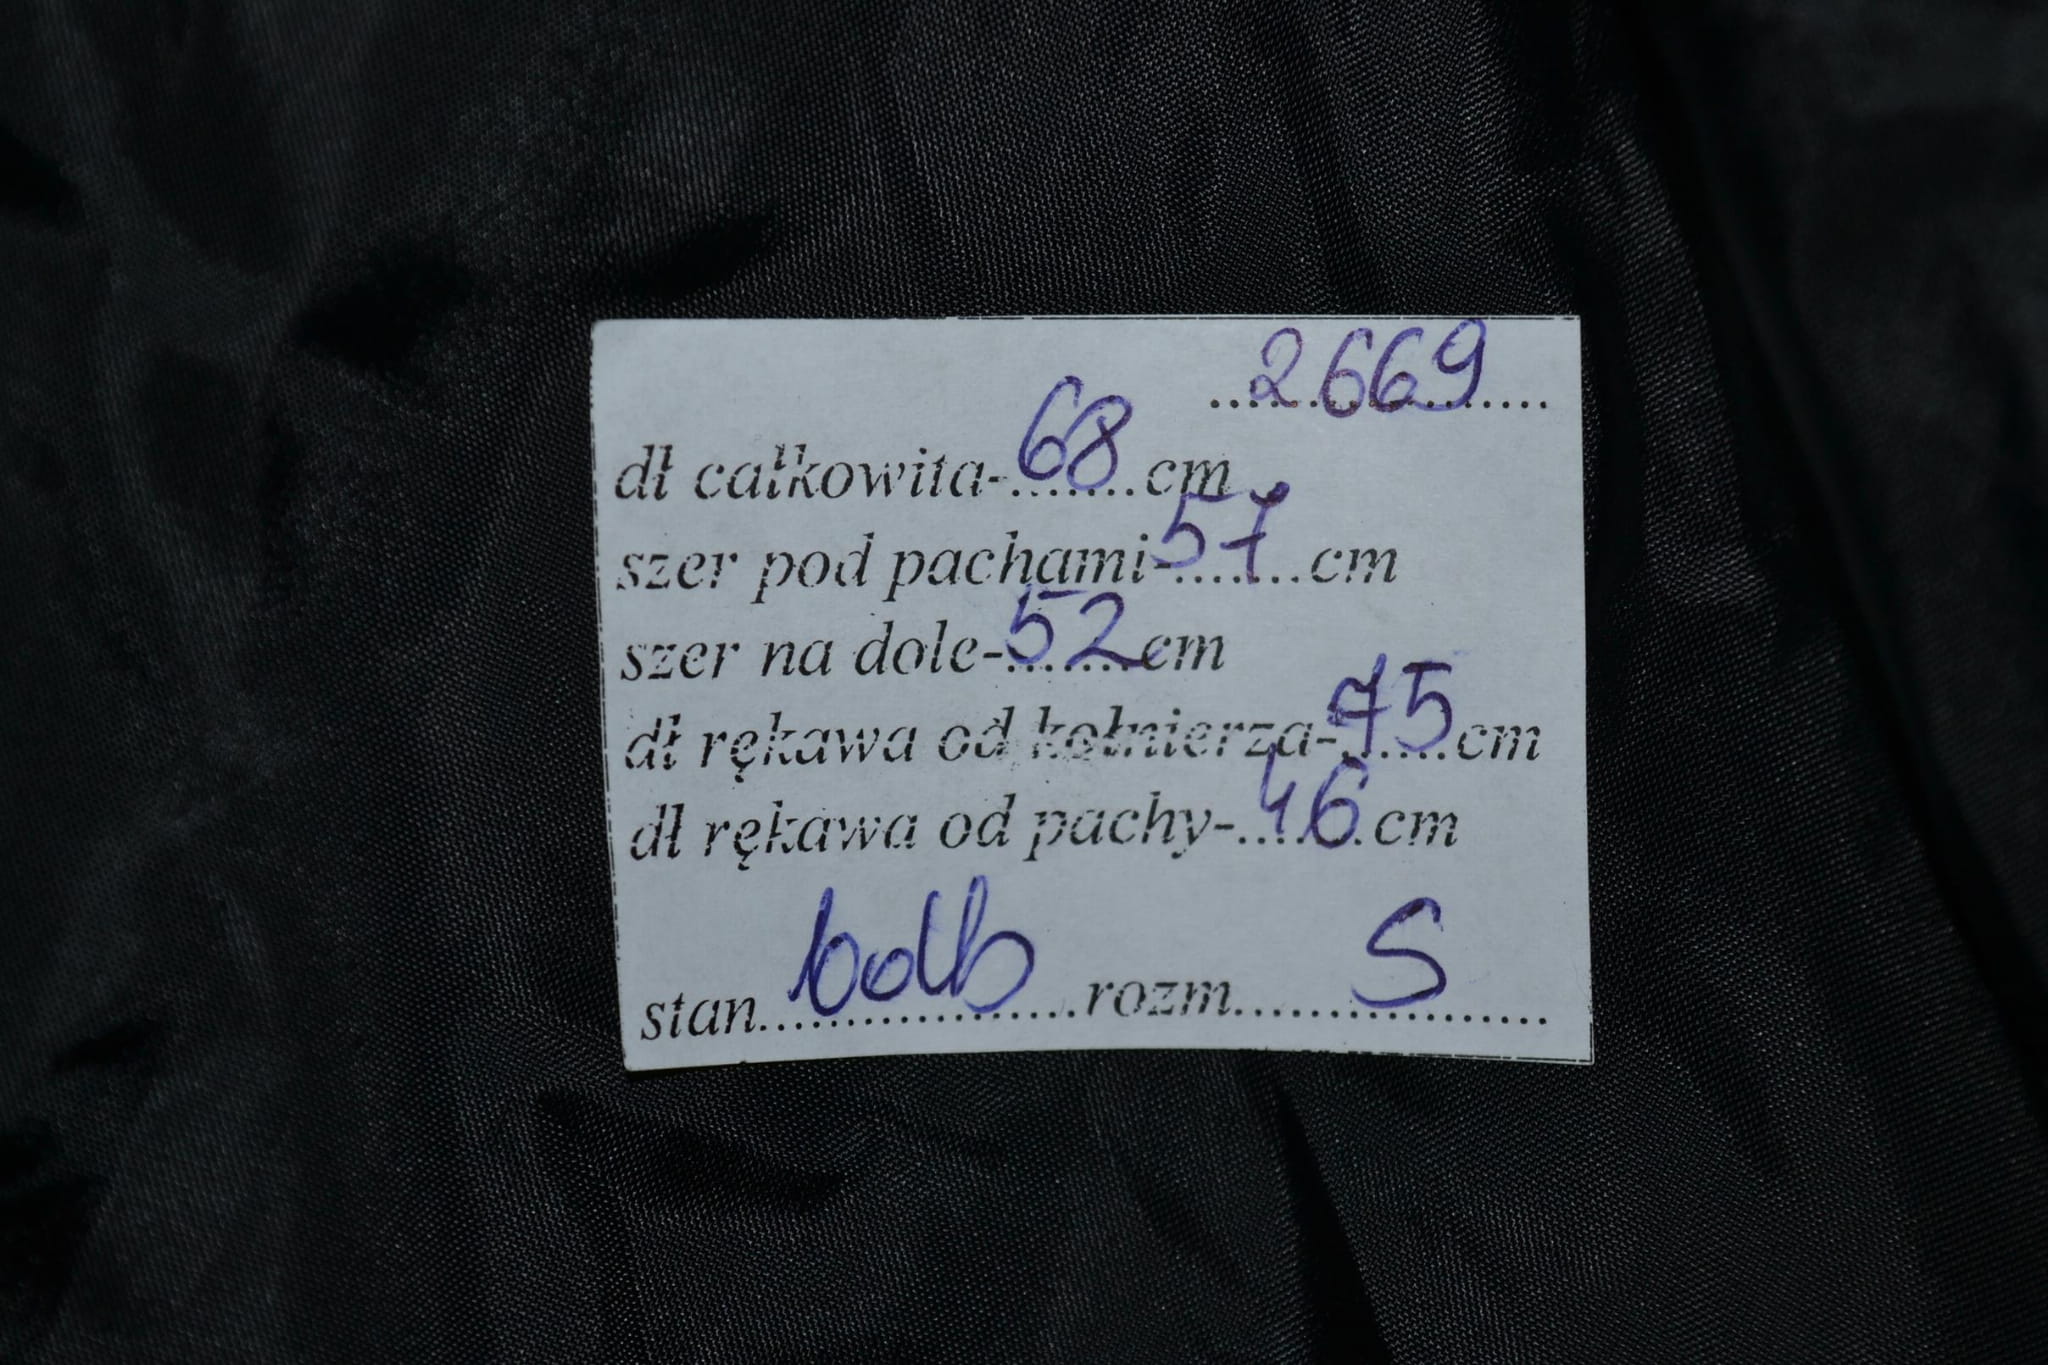 ..2669..
dł całkowita-68cm
szer pod pachami-57cm
szer na dole-52cm
dł rękawa od kołnierza-75cm
dł rękawa od pachy-46cm
stan....................rozm........S........